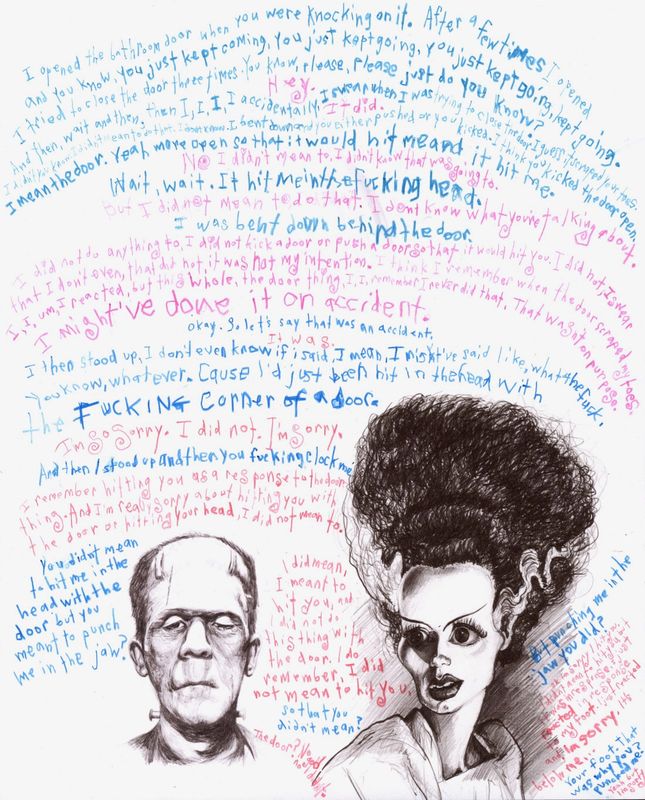 I opened the bathroom door when you were knocking on it. After a few times I opened
and you know, you just kept coming, you just kept going, you just kept going, kept going.
I tried to close the door three times. You know, please, please just do you know?
Hey.
And then, wait and then, then I, I, I, I accidentally, I swear when I was trying to close the door, I guess it scraped your toes.
It did.
I didn't you know I didn't mean to do that. I don't know. I bent down and you either pushed or you kicked. I think you kicked the door open.
I mean the door. Yeah more open so that it would hit me and it hit me.
No I didn't mean to, I didn't know that was going to.
Wait, wait. It hit me in the fucking head.
But I did not mean to do that. I don't know what you're talking about.
I was bent down behind the door.
I did not do anything to, I did not kick a door or push a door so that it would hit you. I did not, I swear
that I don't even, that did not, it was not my intention. I think I remember when the door scraped my toes.
I, I, um, I reacted, but this whole, the door thing, I, I, remember I never did that. That wasn't on purpose.
I might've done it on accident.
okay. So let's say that was an accident.
It was.
I then stood up, I don't even know if i said, I mean, I might've said like, what the fuck,
You know, whatever. Cause I'd just been hit in the head with
the FUCKING corner of a door.
I'm so sorry. I did not. I'm sorry.
And then I stood up and then you fucking clock me
I remember hitting you as a response to the door
thing. And I'm really sorry about hitting you with
the door or hitting your head, I did not mean to.
You didn't mean
to hit me in the
head with the
door but you
meant to punch
me in the jaw?
I did mean,
I meant to
hit you, and
I did not do
this thing with
the door. I do
remember, I did
not mean to hit you.
so that you
didn't mean?
The door? No I
But punching me in the
jaw you did?
I'm sorry.
below me...
Your foot. That
was why you
punched me?